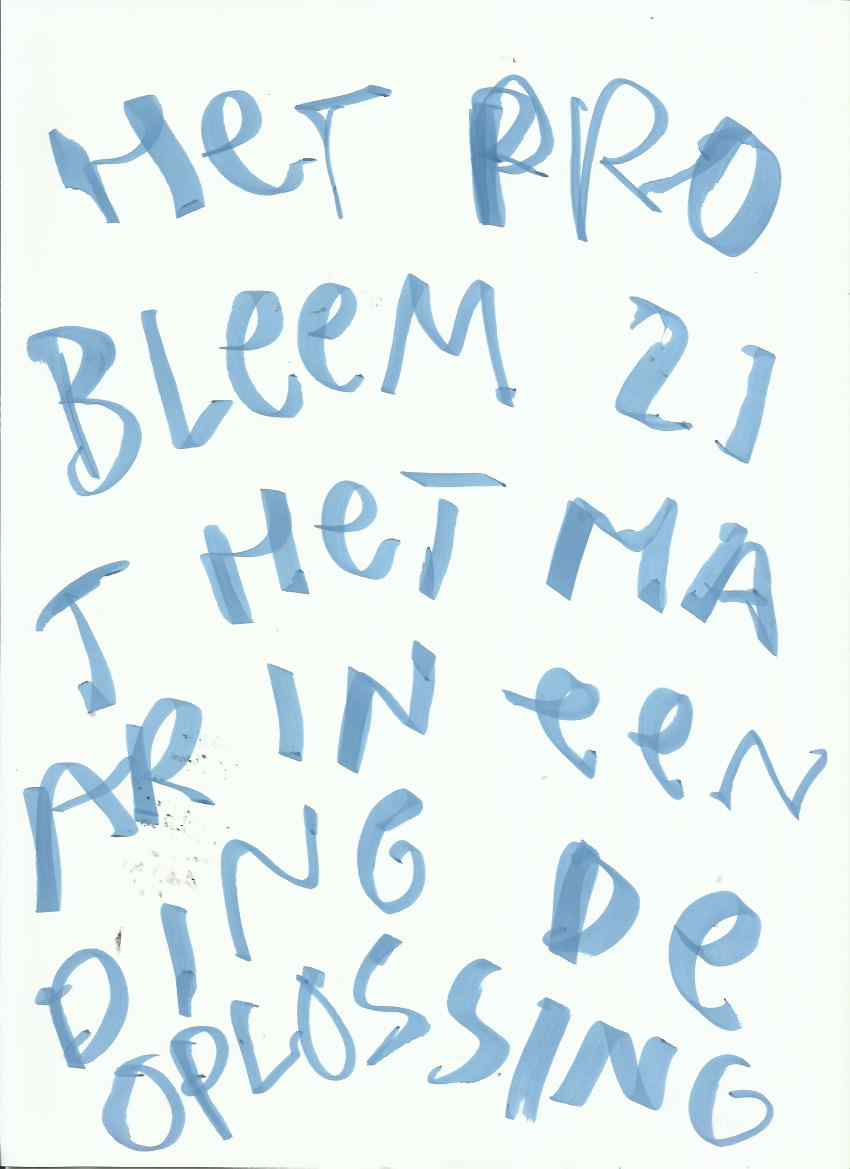 HeT PRO
BLeeM ZI
T HeT MA
AR IN eeN
DING De
OPLOSSING